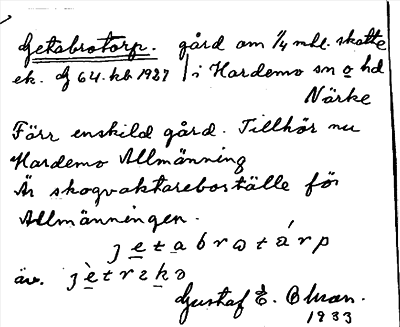 Getabrotorp. gård om 1/4 mtl. skatte
ek. G 64. kb 1927 | i Hardemo sn o hd
Närke
Förr enskild gård. Tillhör nu
Hardemo Allmänning
Är skogvaktareboställe för
Allmänningen.
äv.
Gustaf E. Olsson.
1933